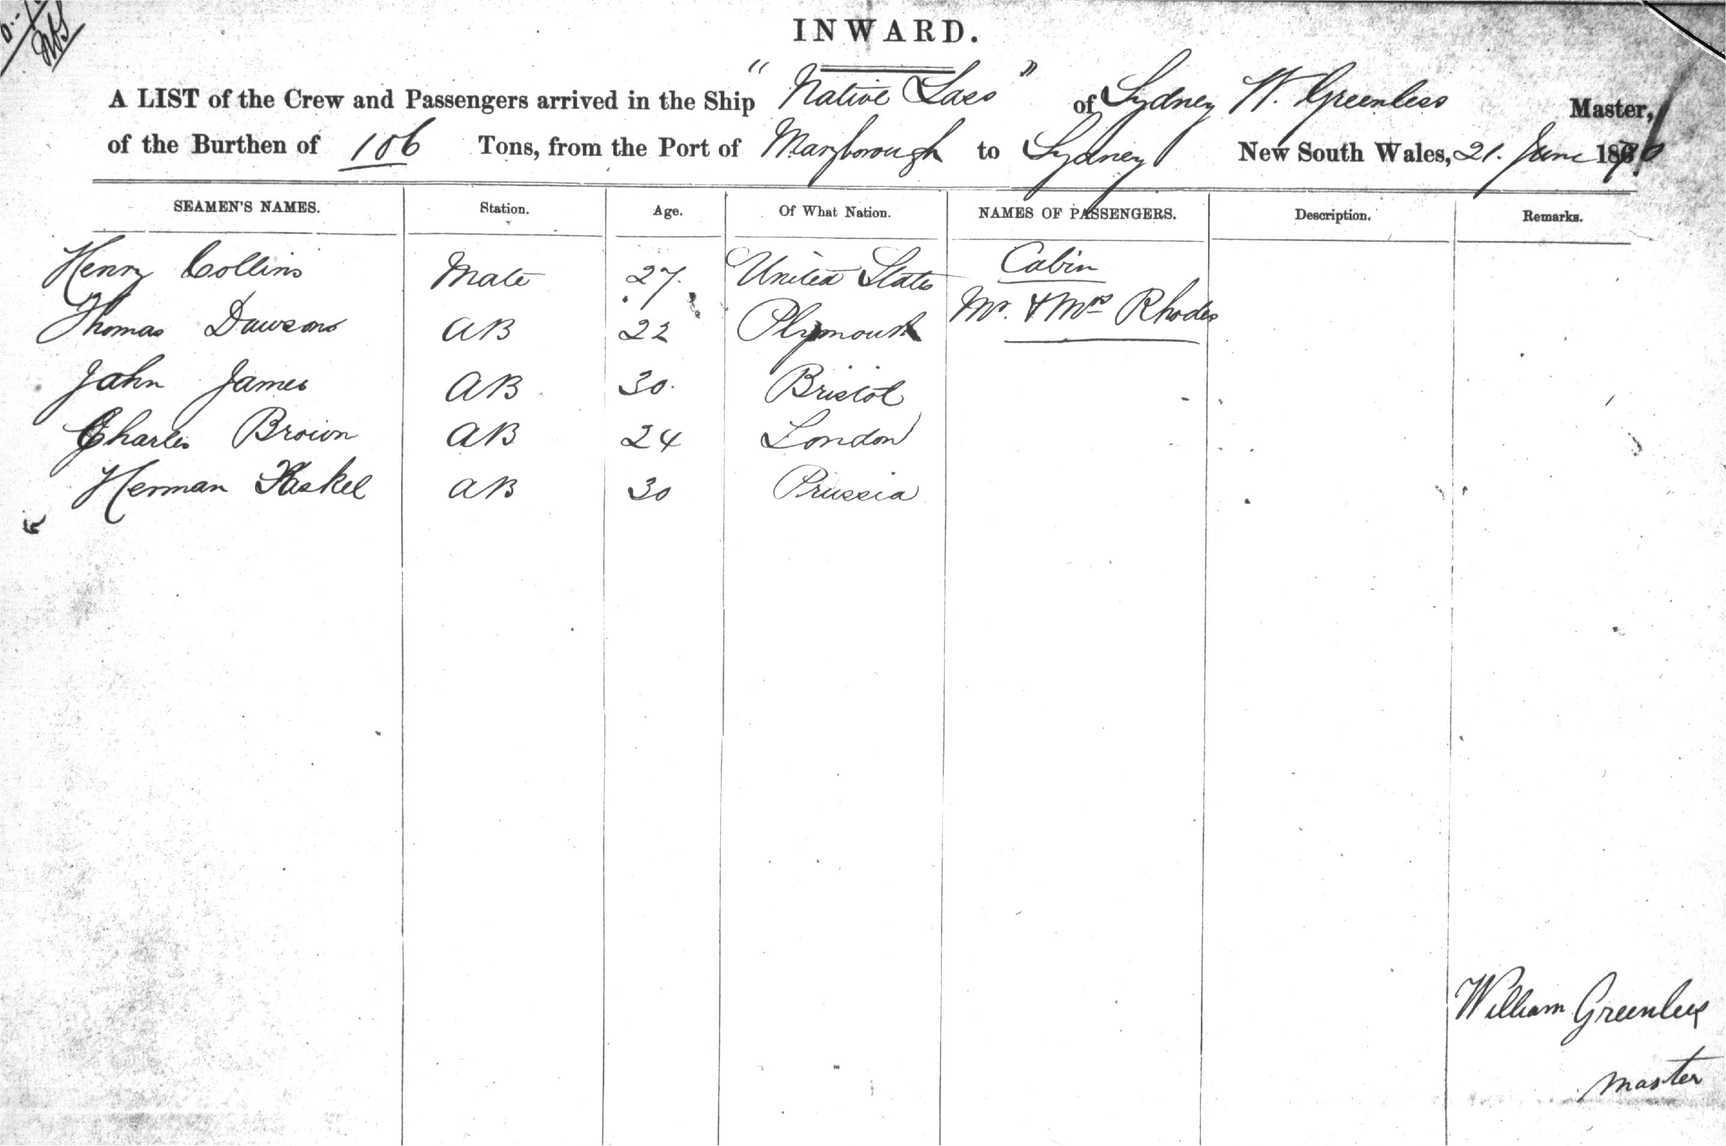 INWARD.
A LIST of the Crew and Passengers arrived in the Ship "Native Lass" of Sydney W. Greenless Master,
of the Burthen of 106 Tons, from the Port of Maryborough to Sydney New South Wales, 21. June 187
SEAMEN'S NAMES. Station. Age. Of What Nation. NAMES OF PASSENGERS. Description. Remarks.
Henry Collins Mate 27. United States Cabin
Thomas Dawson AB 22 Plymouth Mr. & Mrs Rhodes
John James AB 30. Bristol
Charles Brown AB 24 London
Herman AB 30 Prussia
William Greenlees
master